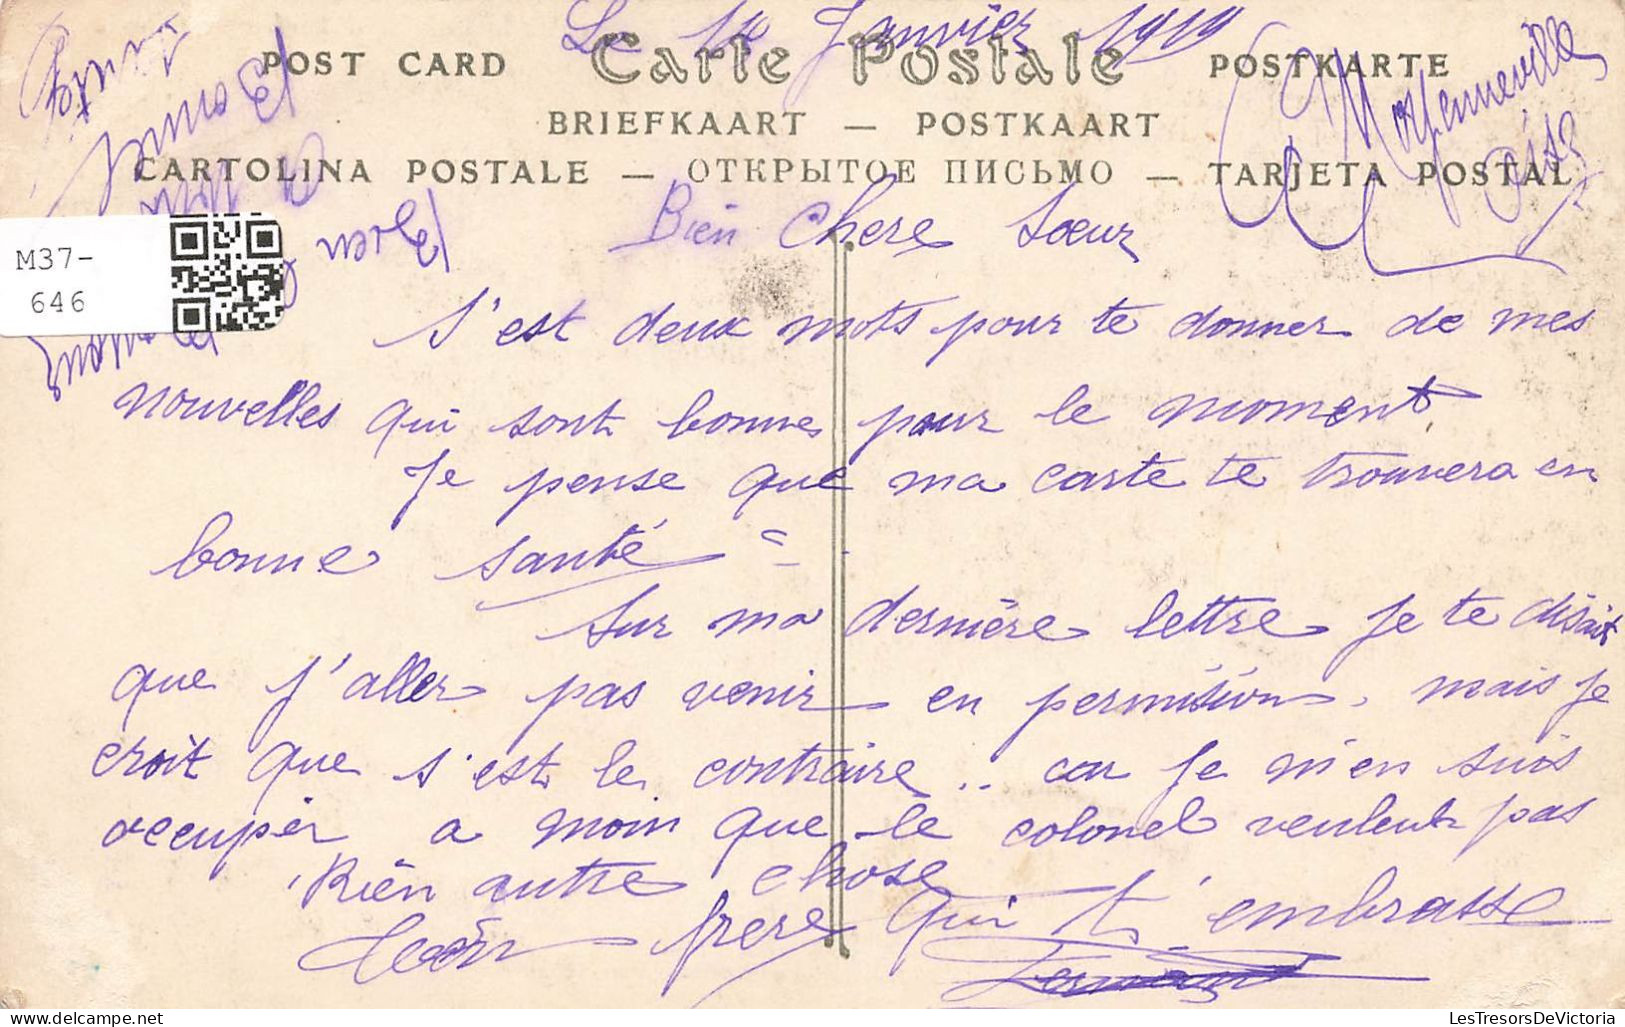 Le 10 Janvier 1919
POST CARD Carte Postale POSTKARTE
BRIEFKAART — POSTKAART
CARTOLINA POSTALE — ОТКРЫТОЕ ПИСЬМО — TARJETA POSTAL
Moyenneville
Bonne
Santé
Bien
M37-
646
Bien Chere Soeur
S'est deux mots pour te donner de mes
nouvelles qui sont bonnes pour le moment
Je pense que ma carte te trouvera en
bonne santé =
Sur ma dernière lettre je te disait
que j'aller pas venir en permision, mais je
croit que s'est le contraire .. car je m'en suis
occuper a moin que le colonel veulent pas
Rien autre chose
frere qui t'embrasse
Fernand
LesTresorsDeVictoria